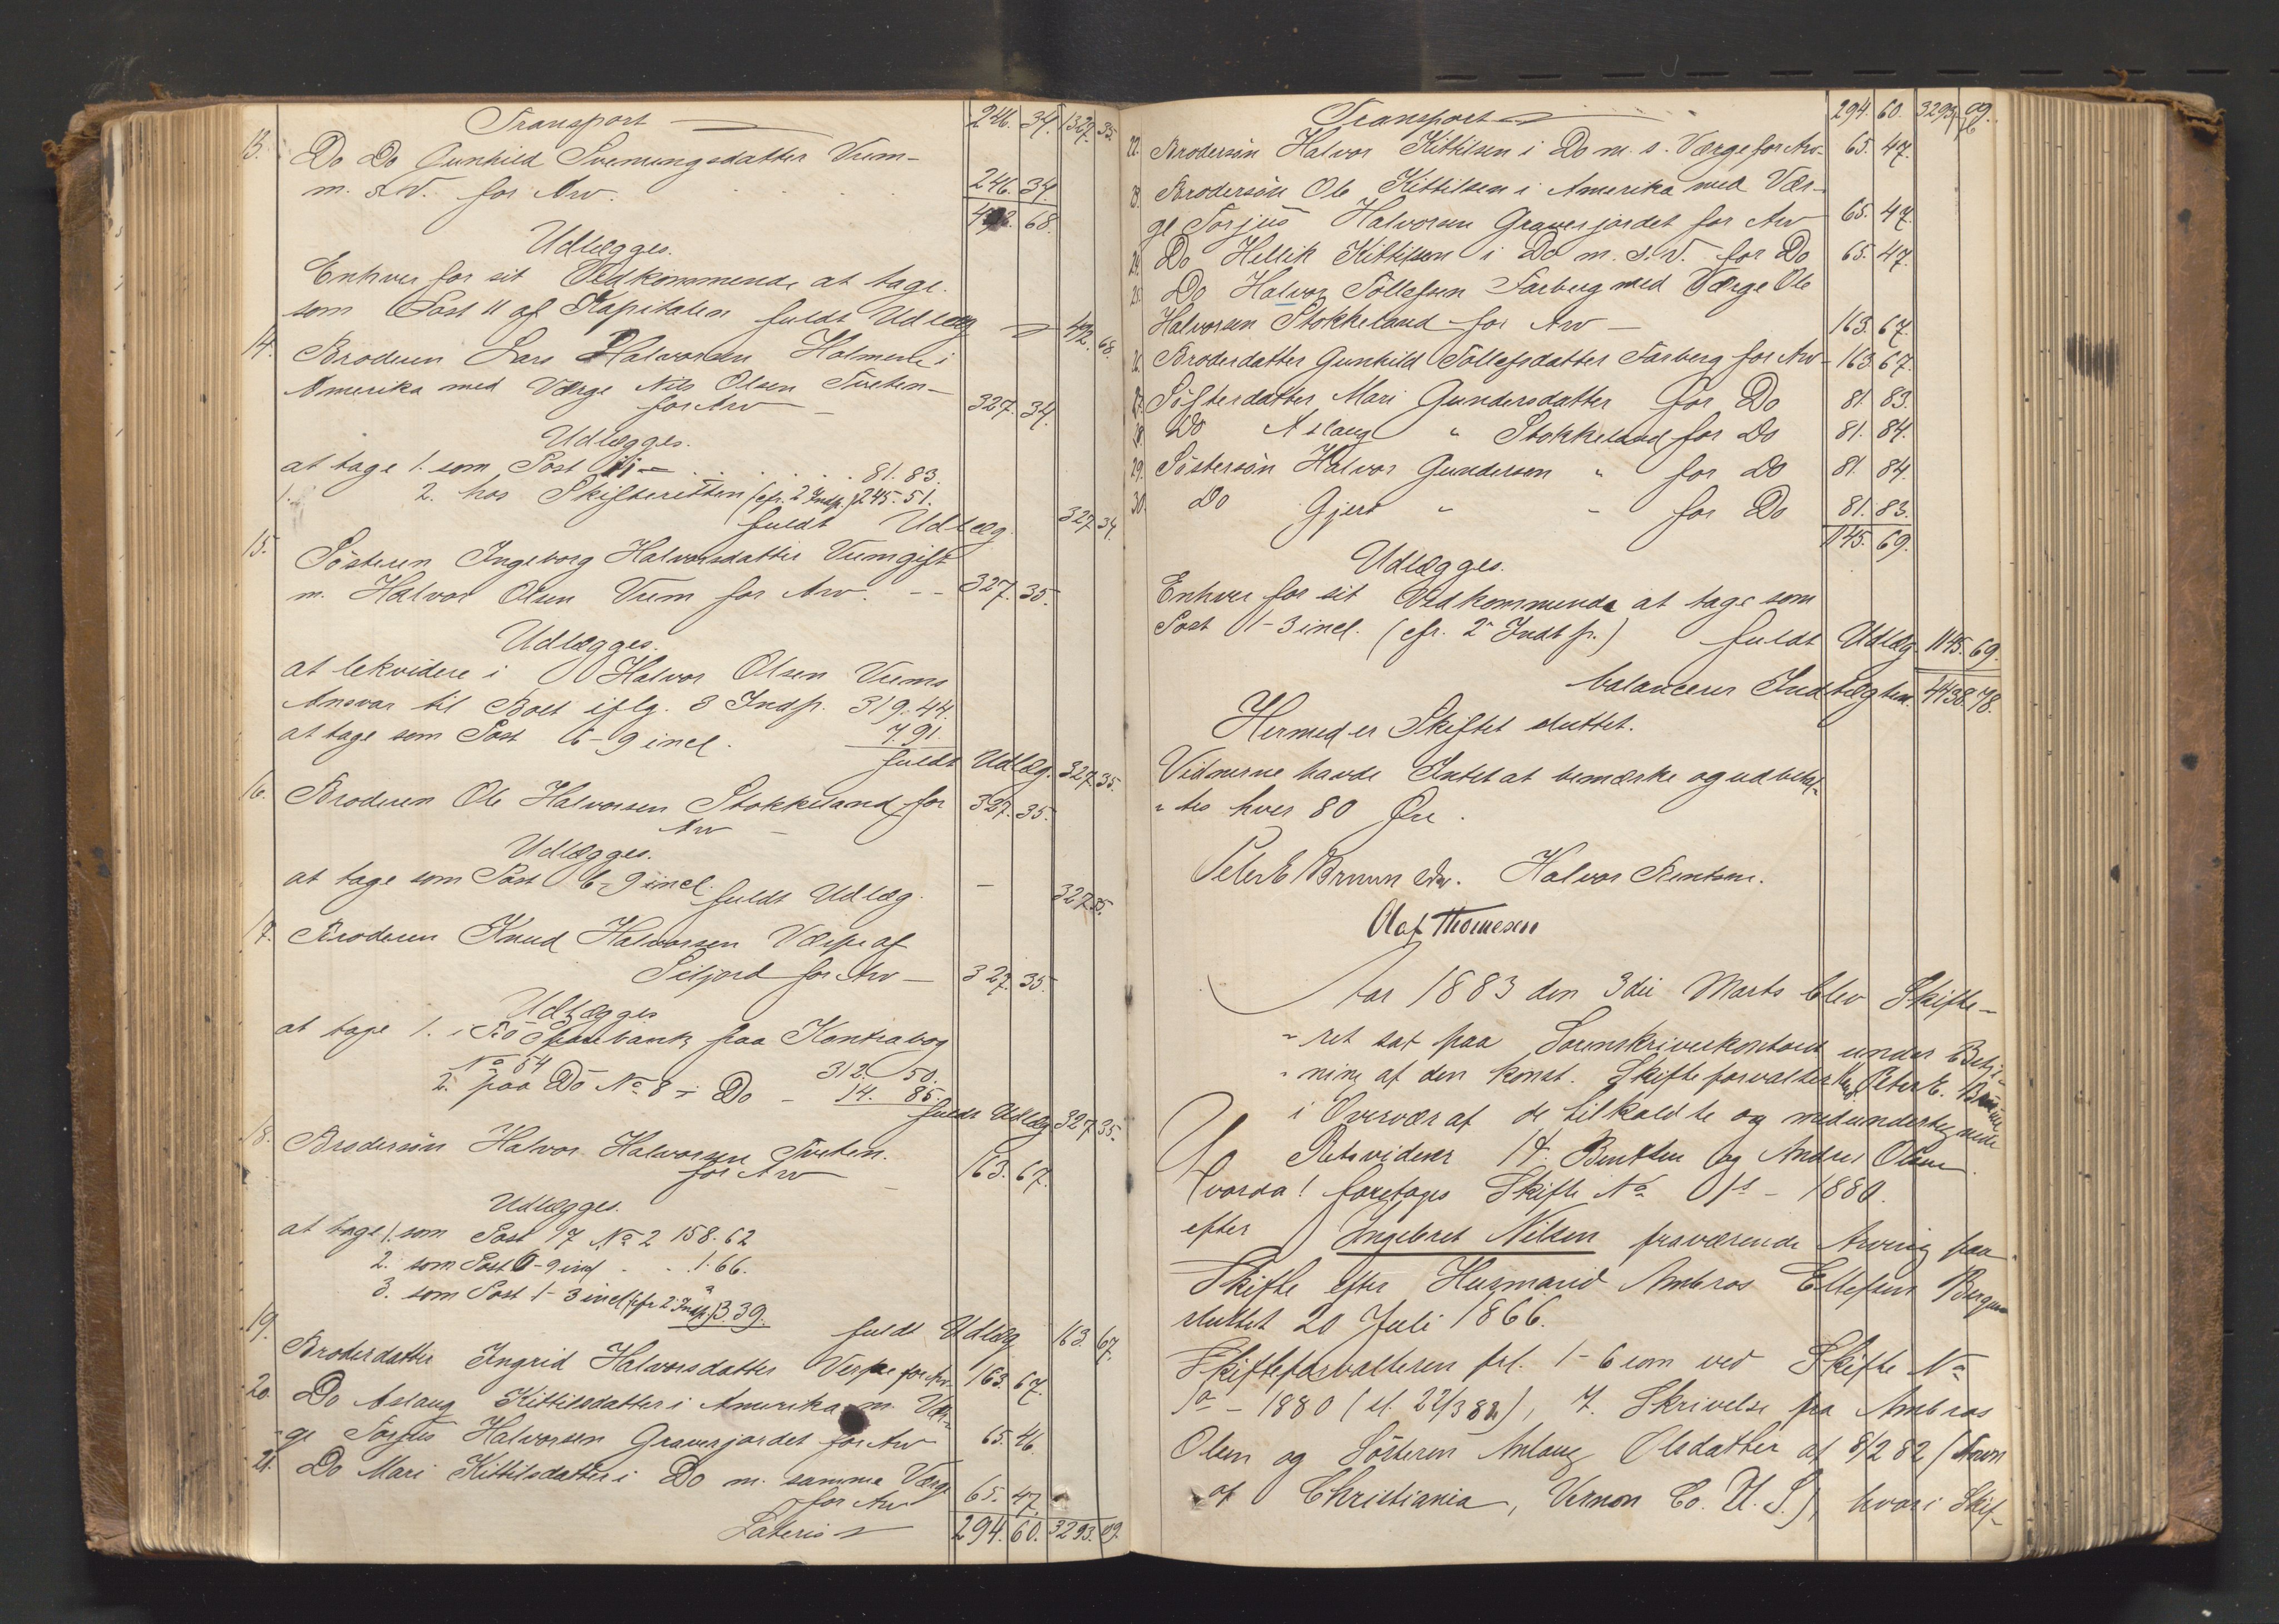 Transport 246. 34. 1327. 35.
13. Do Do Gunhild Svenungsdatter Veum-
m. s. V. for Arv. 246. 34.
492. 68.
Udlægges.
Enhver for sit Vedkommende at tage
som Post 11 af Kapitalen fuldt Udlæg 492. 68.
14. Broderen Lars Halvorsen Holmen i
Amerika med Værge Nils Olsen Tveten-
for Arv 327. 34.
Udlægges.
at tage 1. som Post 11 - 81. 83.
2. hos Skifteretten (cfr. 2 Indp.) 245. 51.
fuldt Udlæg. 327 34.
15. Søsteren Ingeborg Halvorsdatter Veum gift
m. Halvor Olsen Veum for Arv. - - 327. 35.
Udlægges.
at lekvidere i Halvor Olsen Veums
Ansvar til Boet iflg. 3 Indp. 319. 44.
at tage som Post 6-9 incl. 7. 91.
fuldt Udlæg. 327. 35.
16. Broderen Ole Halvorsen Stokkeland for 327. 35.
Arv -
Udlægges.
at tage som Post 6-9 incl. fuldt Udlæg. - 327. 35.
17. Broderen Knud Halvorsen Væpe af
Siljord for Arv - 327. 35.
Udlægges
at tage 1. i Bø Sparebank paa Kontrabog
No 54 312. 50.
2. paa Do No 8 i Do - 14. 85.
fuldt Udlæg 327 35.
18. Brodersøn Halvor Halvorsen Tveten.
for Arv - 163. 67.
Udlægges.
at tage 1. som Post 17 No 2 158. 62
2. som Post 6-9 incl . . 1. 66.
3. som Post 1-3 incl (cfr 2 Indp.) 3 39.
fuldt Udlæg 163. 67.
19. Broderdatter Ingrid Halvorsdatter Vespe for Arv 163. 67.
20. Do Aslaug Kittilsdatter i Amerika m. Vær-
ge Torjus Halvorsen Graverjordet for Arv 65. 46.
21. Do Mari Kittilsdatter i Do m. samme Værge
for Arv 65. 47.
Lateris 294. 60. 3293. 09.
Transport 294. 60. 3293. 09.
22. Brodersøn Halvor Kittilsen i Do m. s. Værge for Arv- 65. 47.
23. Brodersøn Ole Kittilsen i Amerika med Vær-
ge Torjus Halvorsen Graverjordet for Arv 65. 47.
24. Do Hellik Kittilsen i Do m. s. V. for Do 65. 47.
25. Do Halvor Tollefsen Farberg med Værge Ole
Halvorsen Stokkeland for Arv - 163. 67.
26. Broderdatter Gunhild Tollefsdatter Farberg for Arv- 163 67.
27. Søsterdatter Mari Gundersdatter for Do 81. 83.
28. Do Aslaug " Stokkeland for Do 81. 84.
29. Søstersøn Halvor Gundersen " for Do 81. 84.
30. Do Gjert " " for Do 81. 83.
1145. 69.
Udlægges.
Enhver for sit Vedkommende at tage som
Post 1-3 incl. (cfr. 2 Indt p.) fuldt Udlæg 1145. 69.
balancerer Indtægten. 4438. 78.
Hermed er Skiftet sluttet.
Vidnerne havde Intet at bemærke og udbetal-
"tes hver 80 Øre.
Peter E Bruun Halvor Bentsen.
Olaf Thomesen
Aar 1883 den 3die Marts blev Skifte-
"ret sat paa Sorenskriverkontoret under Betje-
"ning af den konst. Skifteforvalter Peter E. Bruun
i Overvær af de tilkaldte og medundertegnede
Retsvidner H. Bentsen og Andres Olsen.
Hvorda! foretoges Skifte No 1880.
efter Ingebret Nilsen fraværende Arving paa
Skifte efter Husmand Ambros Ellefsen
sluttet 20 Juli 1866.
Skifteforvalteren frl. 1-6 som ved Skifte No
1880 (sl. 22/3 82), 7. Skrivelse fra Ambros
Olsen og Søsteren Aslaug Olsdatter af 8/2 82 (Town
of Christiania, Vernon Co. U. S.), hvori Skif-